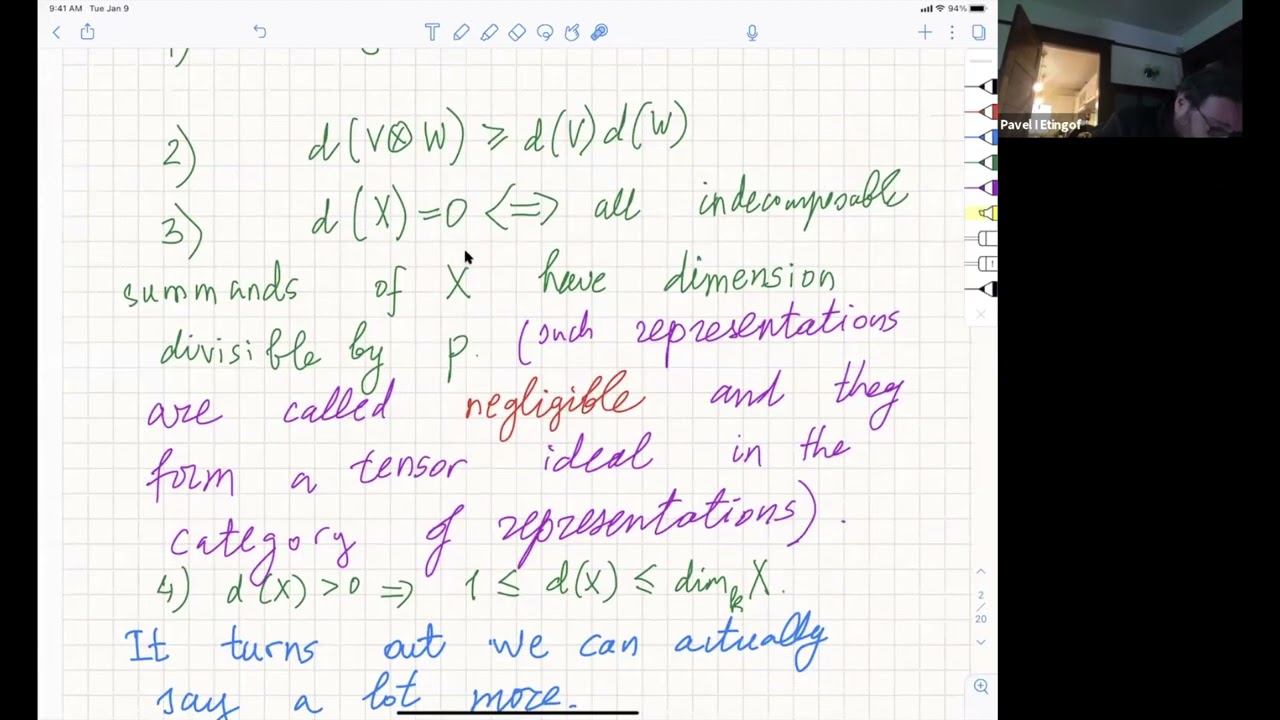 9:41 AM Tue Jan 9
94%
1)
2) d(V⊗W) ≥ d(V)d(W)
3) d(X)=0 <=> all indecomposable
summands of X have dimension
divisible by p. (such representations
are called negligible and they
form a tensor ideal in the
category of representations).
4) d(X)>0 => 1 ≤ d(X) ≤ dim_k X.
It turns out we can actually
say a lot more.
2
/
20
Pavel I Etingof